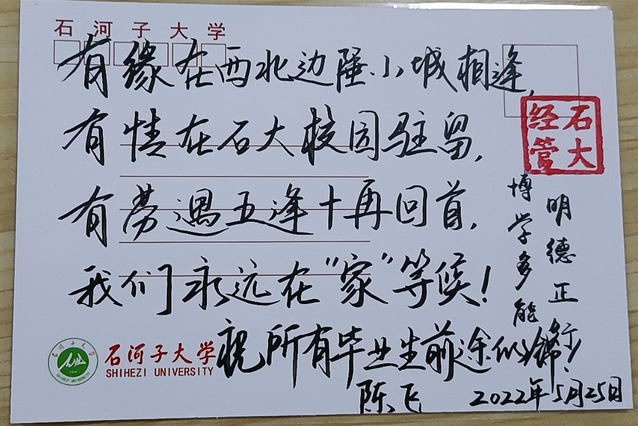 石河子大学
有缘在西北边陲小城相逢,
有情在石大校园驻留,
有劳遇五逢十再回首,
我们永远在“家”等候!
祝所有毕业生前途似锦!
陈飞
2022年5月25日
石大
经管
明德正行
博学多能
石河子大学
SHIHEZI UNIVERSITY